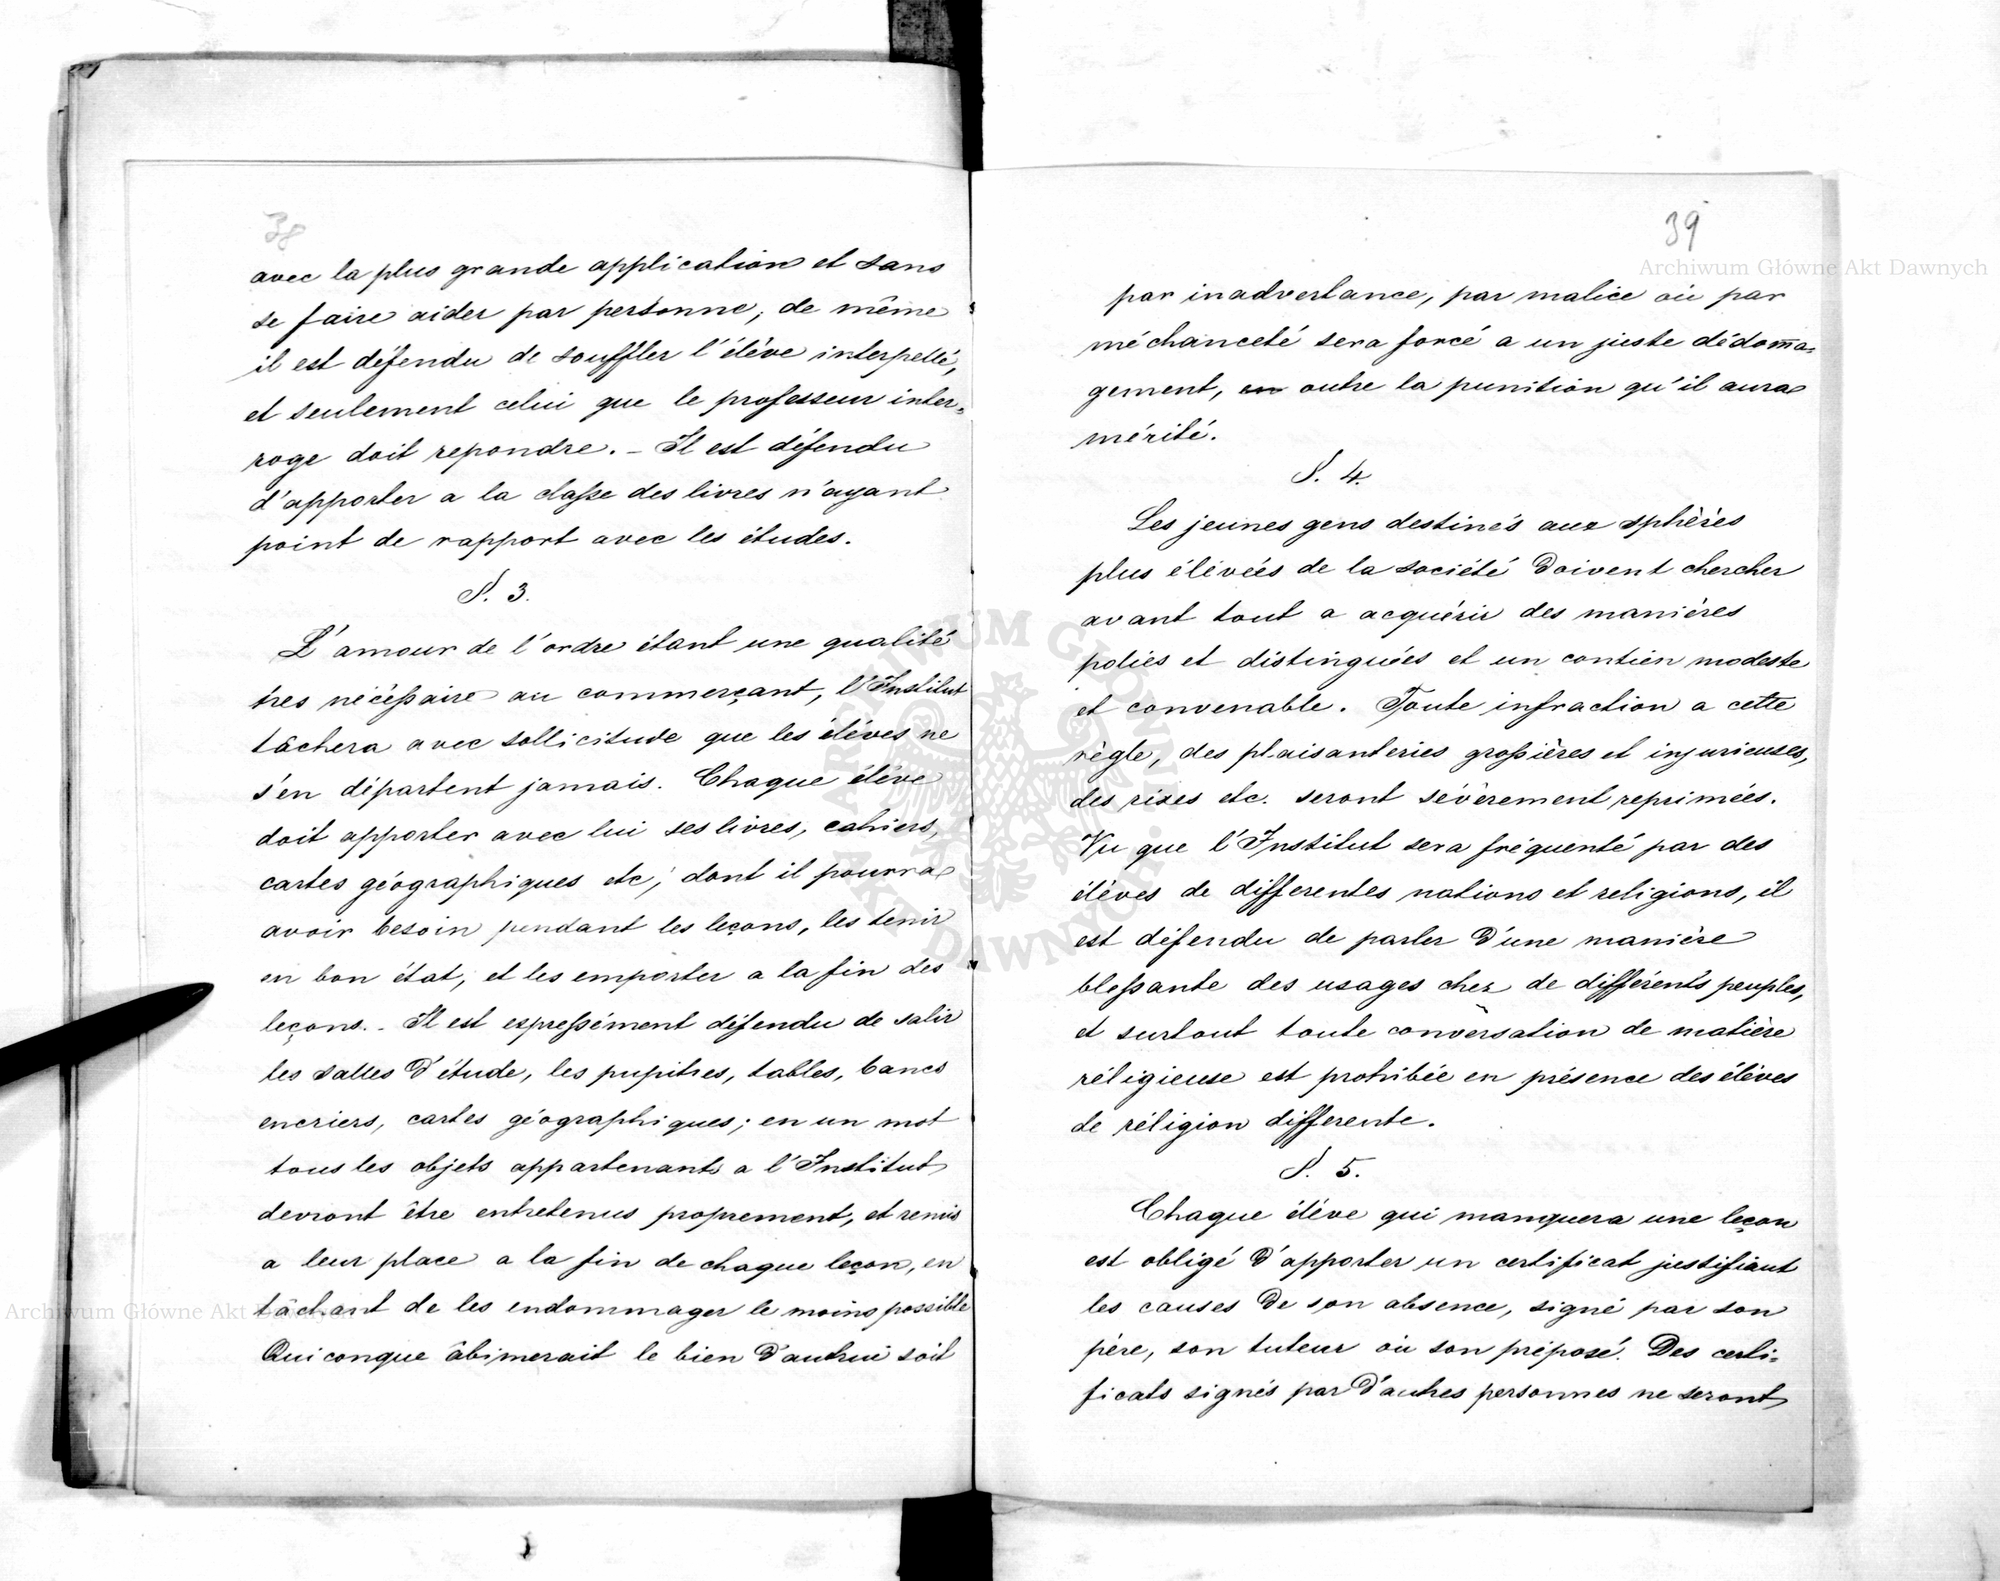 38
avec la plus grande application et sans
se faire aider par personne, de même
il est défendu de souffler l'élève interpellé,
et seulement celui que le professeur inter-
roge doit repondre. - Il est défendu
d'apporter a la classe des livres n'ayant
point de rapport avec les études.
§. 3.
L'amour de l'ordre étant une qualité
très nécéssaire au commerçant, l'Institut
tâchera avec sollicitude que les élèves ne
s'en départent jamais. Chaque élève
doit apporter avec lui ses livres, cahiers,
cartes géographiques etc, dont il pourra
avoir besoin pendant les leçons, les tenir
en bon état, et les emporter a la fin des
leçons. - Il est expressément défendu de salir
les salles d'étude, les pupitres, tables, bancs
encriers, cartes géographiques; en un mot
tous les objets appartenants a l'Institut
devront être entretenus proprement, et remis
a leur place a la fin de chaque leçon, en
tâchant de les endommager le moins possible
Quiconque âbimerait le bien d'autrui soit
39
par inadvertance, par malice où par
méchanceté sera forcé a un juste dédoma-
gement, en outre la punition qu'il aura
mérité.
§. 4.
Les jeunes gens destinés aux sphères
plus élévées de la société doivent chercher
avant tout a acquérir des manières
poliés et distinguées et un contien modeste
et convenable. Toute infraction a cette
règle, des plaisanteries grossières et injurieuses,
des rixes etc. seront sévèrement reprimées.
Vu que l'Institut sera fréquenté par des
élèves de differentes nations et religions, il
est défendu de parler d'une manière
blessante des usages chez de différents peuples,
et surtout toute conversation de matière
réligieuse est prohibée en présence des élèves
de réligion differente.
§. 5.
Chaque élève qui manquera une leçon
est obligé d'apporter un certificat justifiant
les causes de son absence, signé par son
père, son tuteur où son préposé. Des certi-
ficats signés par d'autres personnes ne seront
Archiwum Główne Akt Dawnych
Archiwum Główne Akt Dawnych
ARCHIWUM GŁÓWNE AKT DAWNYCH